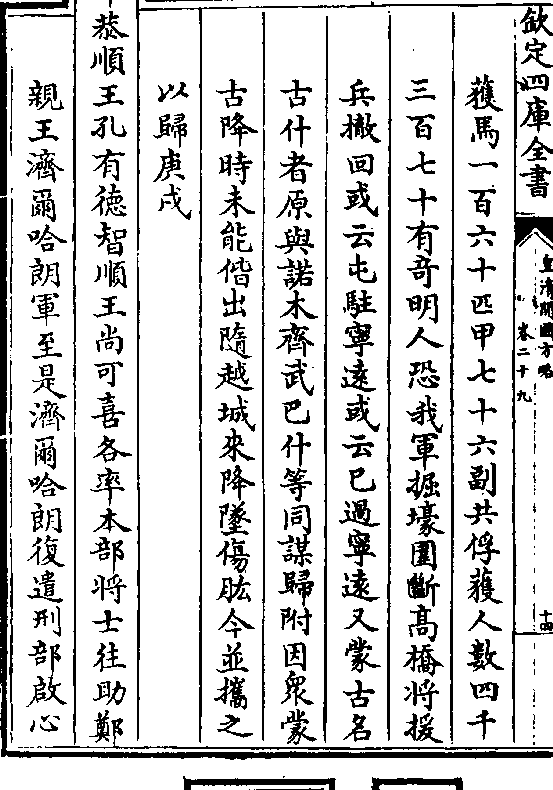 欽定四庫全書
皇清開國方略
卷二十九
十四
獲馬一百六十匹甲七十六副共俘獲人數四千
三百七十有奇明人恐我軍掘壕圍斷高橋将援
兵撤回或云屯駐寧遠或云已過寧遠又蒙古名
古什者原與諾木齊武巴什等同謀歸附因衆蒙
古降時未能偕出隨越城來降墜傷肱今並攜之
以歸庚戌
恭順王孔有德智順王尚可喜各率本部将士往助鄭
親王濟爾哈朗軍至是濟爾哈朗復遣刑部啟心